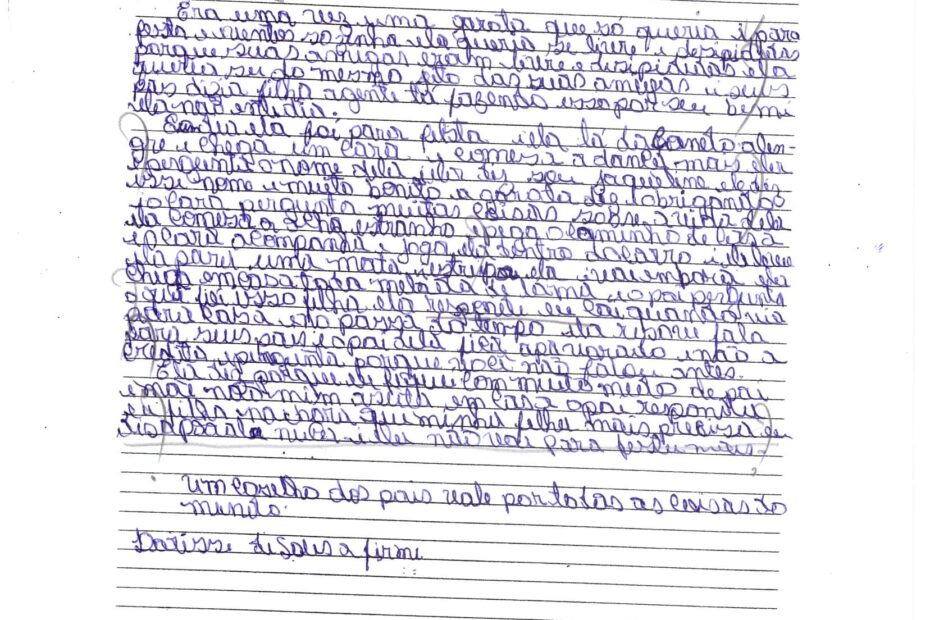 Era uma vez uma garota que só queria i para
festa e eventos sozinha ela queria se livre e desipididas
porque suas amigas eram livre e desipididas ela
queria se do mesmo jeito das suas amigas i seus
pais dizia filha agente tá fazendo isso por seu bem i
ela não entidia.
Em dia ela foi para festa i ela tá dançando alen-
gre e chega um cara i comesa a dança mais ela
e pergunta o nome dela ela diz seu jaqueline ele diz
esse nome e muito bonito a garota diz obrigando
o cara pergunta muitas coisas sobre a vida dela
ela comesa a acha estranho i pega o caminho de casa
e o cara acompanha e joga ela dentro do carro i ele leva
ela para uma mata i estrupa ela i vai embora ela
chega em casa toda melada de lama i o pai pergunta
o que foi isso filha ela responde eu caí quando via
para casa ela passa do tempo ela resouve fala
para seus pais e o pai dela fica apavorado i não a
credita i pergunta porque você não falou antes.
Ela diz porque eu fiquei com muito medo de pai
e mãe não mim aseita em casa o pai respondeu
ei filha não chora que minha filha mais precisa
nuca i ela não vai para festa mais.
um coselho dos pais vale por todas as coisas do
mundo.